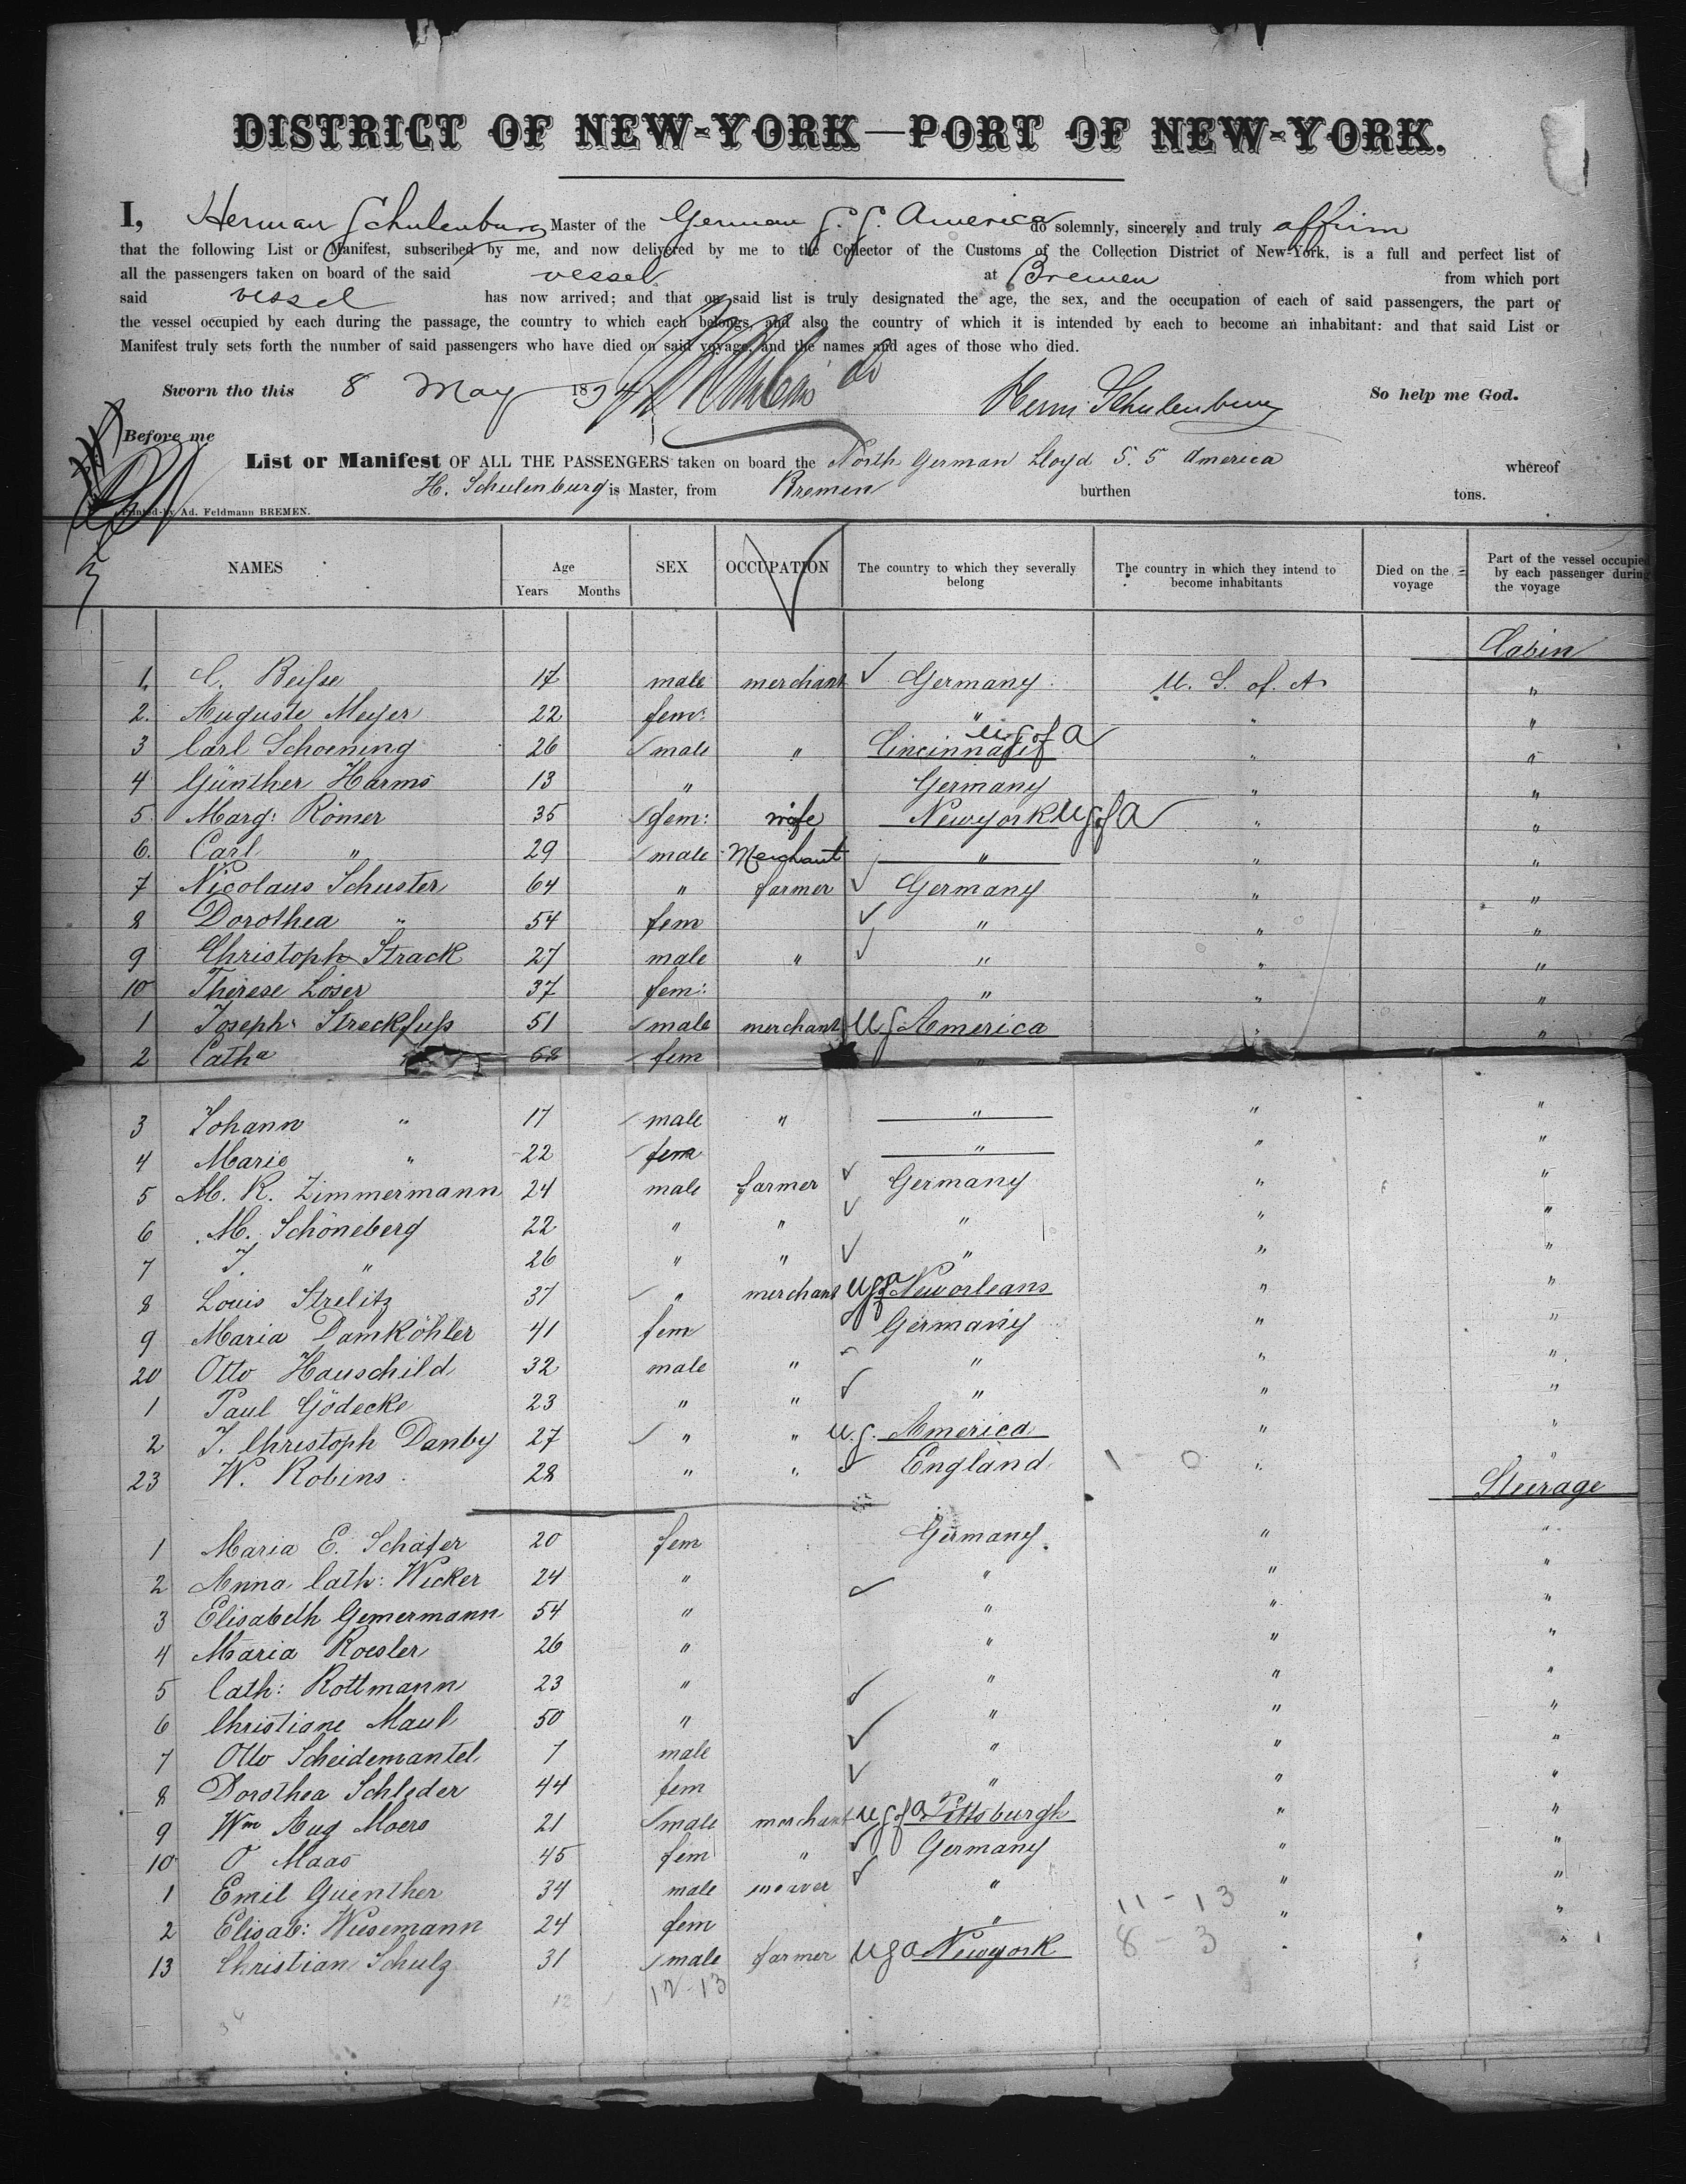 DISTRICT OF NEW-YORK—PORT OF NEW-YORK.
I, Herman Schulenburg Master of the German S. S. America do solemnly, sincerely and truly affirm
that the following List or Manifest, subscribed by me, and now delivered by me to the Collector of the Customs of the Collection District of New-York, is a full and perfect list of
all the passengers taken on board of the said vessel at Bremen from which port
said vessel has now arrived; and that on said list is truly designated the age, the sex, and the occupation of each of said passengers, the part of
the vessel occupied by each during the passage, the country to which each belongs, and also the country of which it is intended by each to become an inhabitant: and that said List or
Manifest truly sets forth the number of said passengers who have died on said voyage, and the names and ages of those who died.
Sworn tho this 8 May 1894 Herm. Schulenburg So help me God.
Before me
List or Manifest OF ALL THE PASSENGERS taken on board the North German Lloyd S. S America whereof
H. Schulenburg is Master, from Bremen burthen tons.
Printed by Ad. Feldmann BREMEN.
NAMES Age Years Months SEX OCCUPATION The country to which they severally belong The country in which they intend to become inhabitants Died on the voyage Part of the vessel occupied by each passenger during the voyage
Cabin
1. C. Beisse 17 male merchant ✓ Germany U. S. of. A. "
2. Auguste Meyer 22 fem: " " "
3 Carl Schoening 26 ✓ male " Cincinnati U S of A " "
4 Günther Harms 13 " Germany " "
5. Marg: Römer 35 ✓ fem: wife Newyork U S of A " "
6. Carl " 29 ✓ male Merchant " " "
7 Nicolaus Schuster 64 " farmer ✓ Germany " "
8 Dorothea " 54 fem ✓ " " "
9 Christoph Strack 27 male " ✓ " " "
10 Therese Löser 37 fem: " " "
1 Joseph Streckfuss 51 ✓ male merchant U S America " "
2 Catha 68 ✓ fem "
3 Johann " 17 ✓ male " " " "
4 Marie " 22 ✓ fem " " "
5 M. K. Zimmermann 24 male farmer ✓ Germany " "
6 M. Schöneberg 22 " " ✓ " " "
7 J. " 26 " " ✓ " " "
8 Louis Strelitz 37 ✓ " merchant U S of a Neworleans " "
9 Maria Damköhler 41 fem Germany " "
20 Otto Hauschild 32 male " " " "
1 Paul Gödecke 23 " " ✓ " " "
2 J. Christoph Danby 27 ✓ " " U. S. America " "
23 W. Robins 28 " " ✓ England 1 - 0 " "
Steerage
1 Maria E. Schäfer 20 fem Germany " "
2 Anna Cath: Wicker 24 " ✓ " " "
3 Elisabeth Gemermann 54 " " " "
4 Maria Roesler 26 " " " "
5 Cath: Rottmann 23 " ✓ " " "
6 Christiane Maul 50 " ✓ " " "
7 Otto Scheidemantel 7 male ✓ " " "
8 Dorothea Schleder 44 fem " " "
9 Wm Aug Moers 21 ✓ male merchant U S of a Pittsburgh " "
10 O Maas 45 fem " ✓ Germany " "
1 Emil Guenther 34 male weaver ✓ " " "
2 Elisab: Wiesemann 24 fem " 11 - 13 " "
13 Christian Schulz 31 ✓ male farmer U S a Newyork 8 - 3 " "
12 12-13